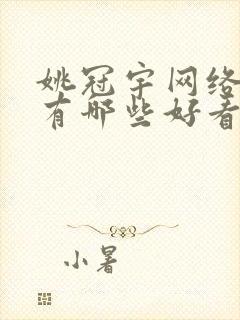 姚冠宇网络
有哪些好看
小暑